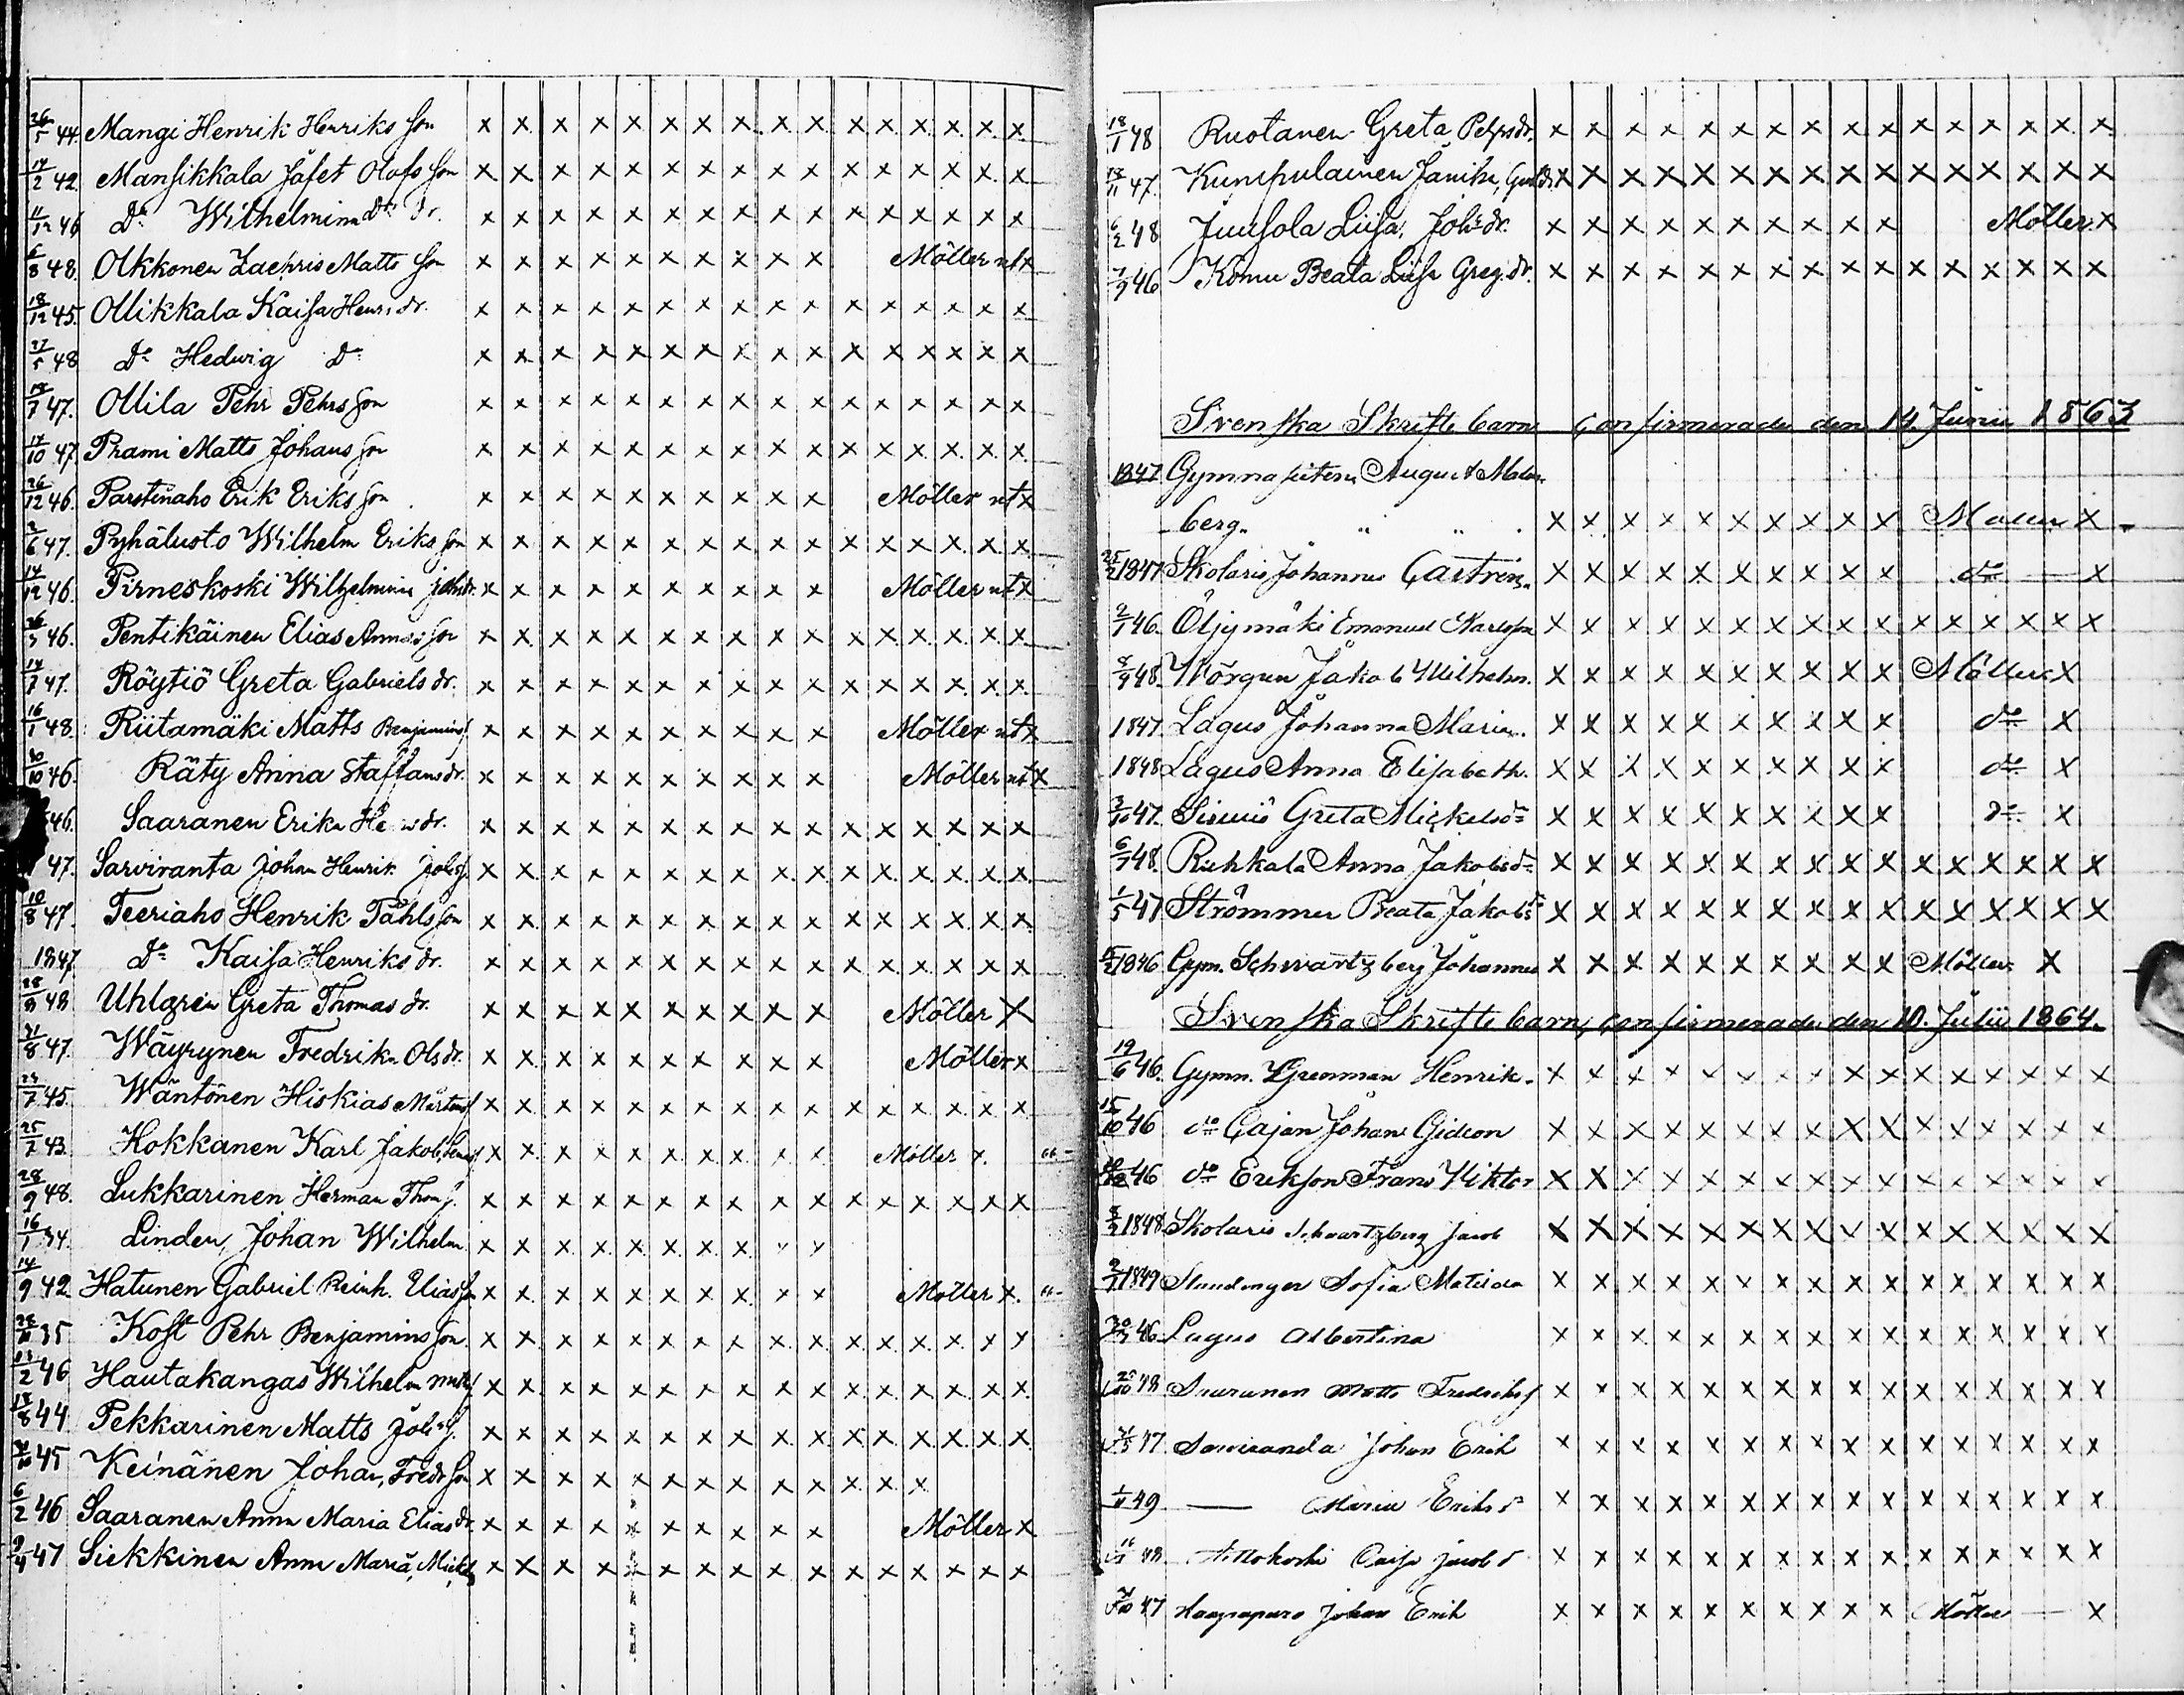 26/5 44. Mangi Henrik Henriks son x x x x x x x x x x x x x x x x
17/2 42 Mansikkala Jafet Olofs son x x x x x x x x x x x x x x x x
11/12 46 Do Wilhelmina Do dr. x x x x x x x x x x x x x x x x
6/8 48. Olkkonen Zachris Matts son x x x x x x x x x x Möller nt x
18/12 45. Ollikkala Kaisa Henr. dr. x x x x x x x x x x x x x x x x
27/5 48 Do Hedwig Do x x x x x x x x x x x x x x x x
18/7 47. Ollila Pehr Pehrs son x x x x x x x x x x x x x x x x
17/10 47. Prami Matts Johans son x x x x x x x x x x x x x x x x
26/12 46. Parstinaho Erik Eriks son x x x x x x x x x x Möller nt x
2/6 47. Pyhäluoto Wilhelm Eriks son x x x x x x x x x x x x x x x x
14/12 46. Pirneskoski Wilhelmina Johs dr. x x x x x x x x x x Möller nt x
46. Pentikäinen Elias Anders son x x x x x x x x x x x x x x x x
14/7 47. Röytiö Greta Gabriels dr. x x x x x x x x x x x x x x x x
16/1 48. Riitamäki Matts Benjamins x x x x x x x x x x Möller nt x
30/10 46. Räty Anna Staffans dr. x x x x x x x x x x Möller nt x
46. Saaranen Erika dr. x x x x x x x x x x x x x x x x
47. Sarviranta Johan Henrik Johs x x x x x x x x x x x x x x x x
10/8 47. Teeriaho Henrik Påhls son x x x x x x x x x x x x x x x x
1847 Do Kaisa Henriks dr. x x x x x x x x x x x x x x x x
28/8 48 Uhlgrén Greta Thomas dr. x x x x x x x x x x Möller x
31/8 47. Wäyrynen Fredrika Ols dr. x x x x x x x x x x Möller x
24/7 45. Wäntönen Hiskias Mårtens x x x x x x x x x x x x x x x x
25/7 43. Hokkanen Karl Jakob x x x x x x x x x x Möller x.
28/9 48. Lukkarinen Herman Thom. x x x x x x x x x x x x x x x x
16/1 34. Linden, Johan Wilhelm x x x x x x x x x x
14/9 42 Hatunen Gabriel Reinh. Elias son x x x x x x x x x x Möller x.
35 Kost Pehr Benjamins son x x x x x x x x x x x x x x x x
13/2 46 Hautakangas Wilhelm Matts x x x x x x x x x x x x x x x x
13/8 44 Pekkarinen Matts Johs x x x x x x x x x x x x x x x x
45 Keinänen Johan, Fredr. son x x x x x x x x x x x x x
6/2 46 Saaranen Anna Maria Elias dr. x x x x x x x x x x Möller x
9/4 47 Siekkinen Anna Maria, Mick x x x x x x x x x x x x x x x x
18/1 48 Ruotanen Greta Pehrs dr. x x x x x x x x x x x x x x x x
13/11 47. Kumpulainen x x x x x x x x x x x x x x x x
6/2 48 Juusola Liisa, Johs dr. x x x x x x x x x x Möller x
7/9 46 Komu Beata Liisa Greg. dr. x x x x x x x x x x x x x x x x
Svenska Skriftebarn Confirmerade den 14 Junii 1863
1847 Gymnasisten August Malm-
berg. x x x x x x x x x x Möller x
25/2 1847 Skolaris Johannes Castrén. x x x x x x x x x x do x
2/1 46. Öljymäki Emanuel Karlsson x x x x x x x x x x x x x x x x
5/9 48. Wörgren Jakob Wilhelm. x x x x x x x x x x Möller x
1847 Lagus Johanna Maria. x x x x x x x x x x do x
1848 Lagus Anna Elisabeth. x x x x x x x x x x do x
3/10 47. Greta Mickelsdr x x x x x x x x x x do x
6/7 48. Riihkala Anna Jakobsdr x x x x x x x x x x x x x x x x
1/5 47 Strömmer Beata Jakobs x x x x x x x x x x x x x x x x
1846 Gym. Schwartzberg Johannes x x x x x x x x x x Möller x
Svenska Skriftebarn, Confirmerade den 10. Julii 1864.
19/6 46. Gymn. Grenman Henrik. x x x x x x x x x x x x x x x x
15/10 46 do Cajan Johan Gideon x x x x x x x x x x x x x x x x
46 do Erikson Frans Viktor x x x x x x x x x x x x x x x x
1848 Skolaris Schwartzberg Jacob x x x x x x x x x x x x x x x x
1849 Staudinger Sofia Matilda x x x x x x x x x x x x x x x x
46 Lagus Albertina x x x x x x x x x x x x x x x x
48 Saaranen Matts Fredriks x x x x x x x x x x x x x x x x
47 Sarviranda Johan Erik x x x x x x x x x x x x x x x x
49 — Maria Eriks d x x x x x x x x x x x x x x x x
48 Caisa Jacobs d x x x x x x x x x x x x x x x x
47 Haapapuro Johan Erik x x x x x x x x x x Möller — x